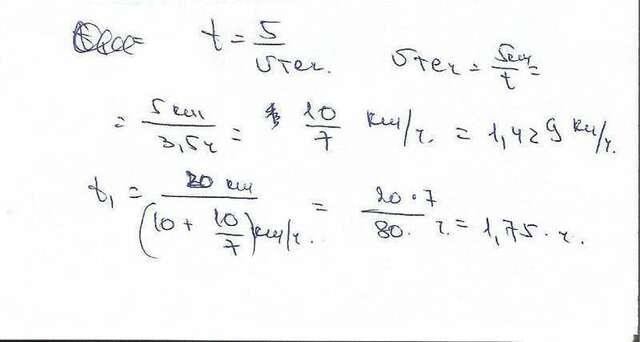 t = 5/vтеч. vтеч = 5км/t =
= 5 км/3,5ч = 10/7 км/ч. = 1,429 км/ч.
t₁ = 20 км/(10 + 10/7) км/ч. = 20·7/80· ч. = 1,75· ч.